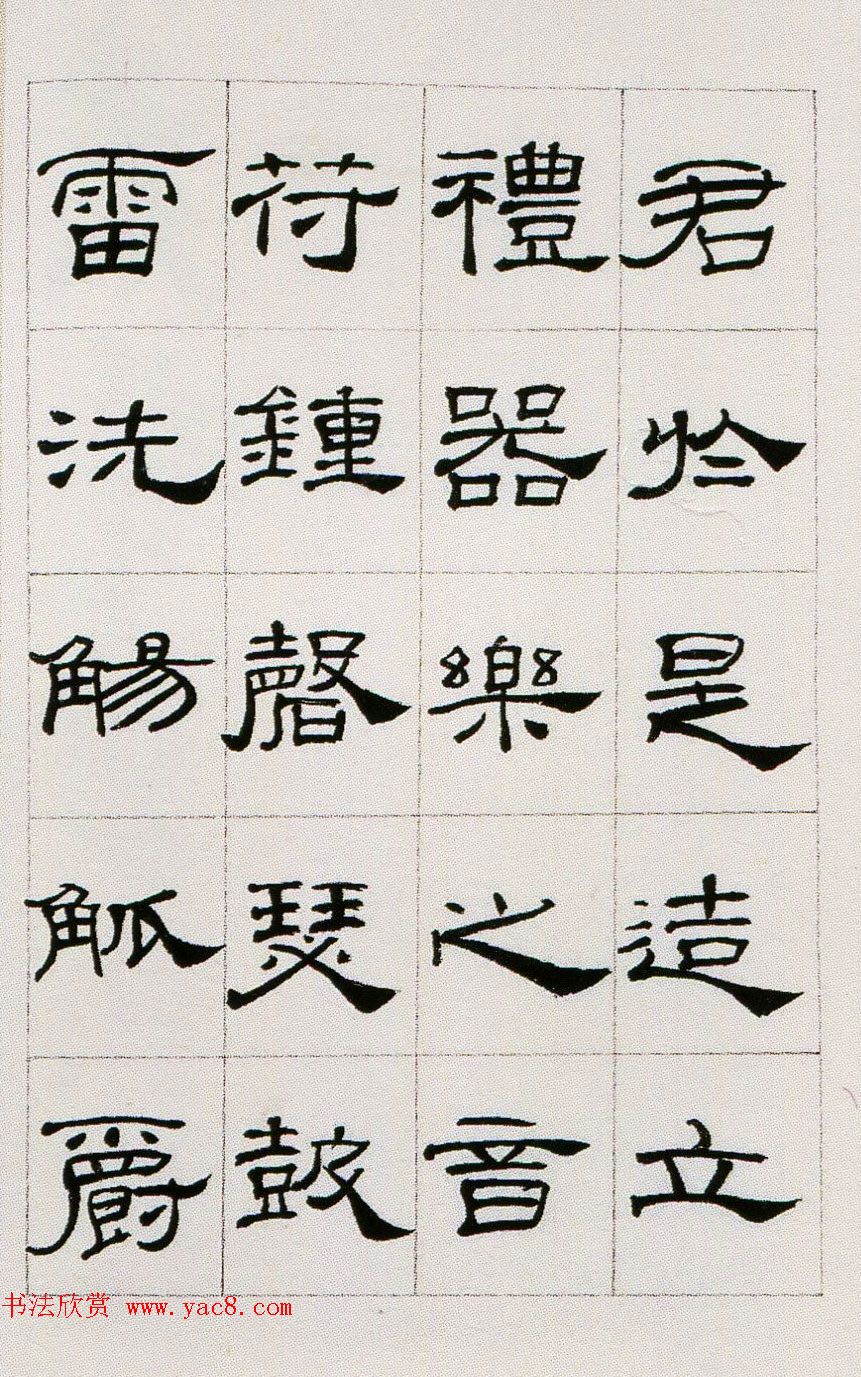 君於是造立
禮器樂之音
苻鍾磬瑟皷
雷洗觴觚爵
书法欣赏 www.yac8.com